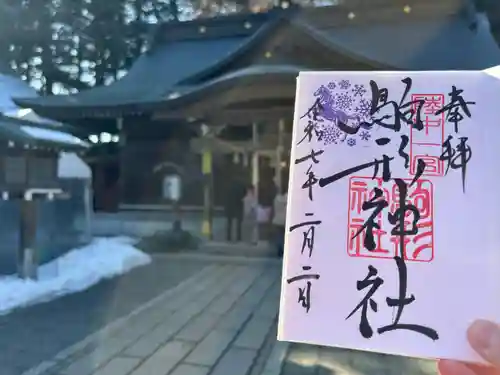 奉拝
陸中一宮
駒形神社
駒形神社
令和七年二月二日